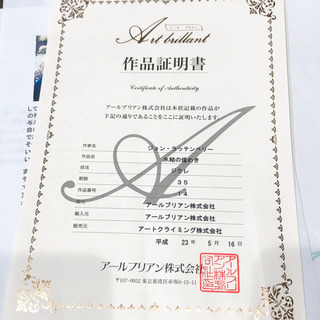 Art brillant
作品証明書
Certificate of Authenticity
アールブリアン株式会社は本状記載の作品が
下記の通りであることをここに証明いたします。
作家名 ジョン・ラッテンベリー
作品名 氷結の煌めき
技法 ジクレ
部数 35
作品番号
輸入元 アールブリアン株式会社
販売元 アートクライミング株式会社
アールブリアン株式会社
平成 23年 5月 16日
アールブリアン株式会社
〒107-0052 東京都港区赤坂6-15-11